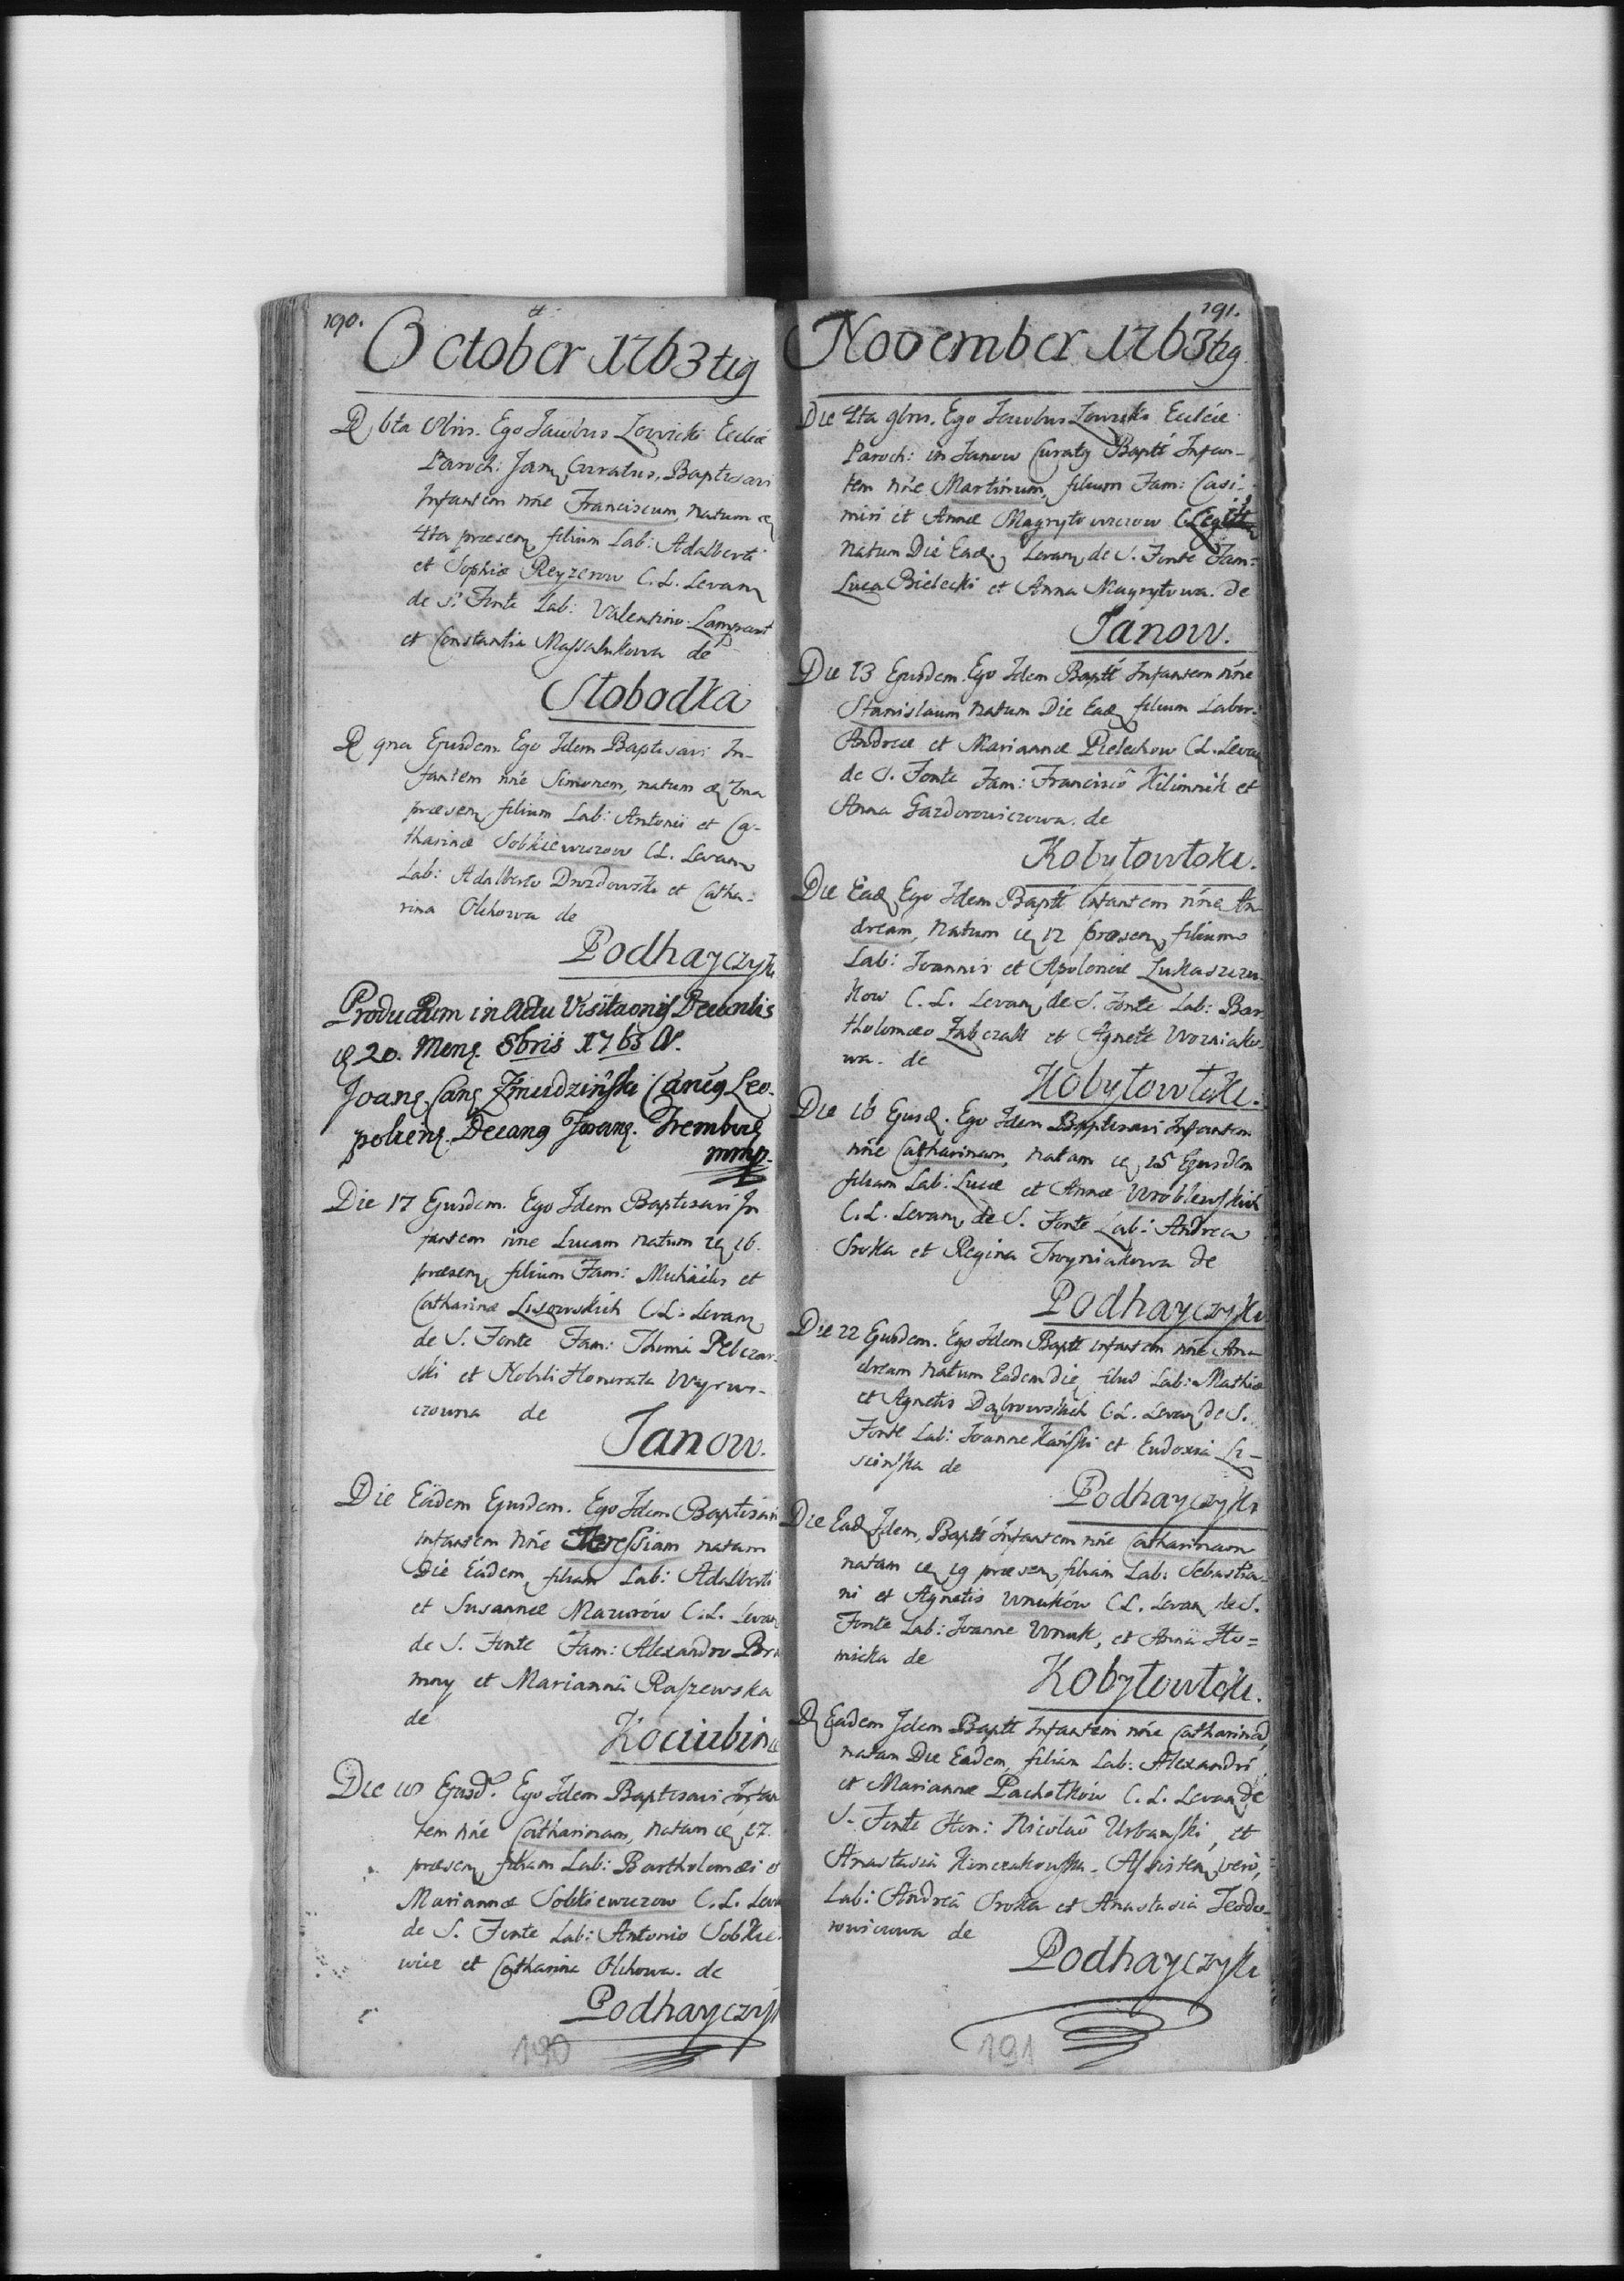 190.
October 1763 tig
D 6ta 8bris. Ego Jacobus Łowicki Eccliae
Paroch: Jan Curatus, Baptisavi
Infantem nne Franciscum, natum
4ta praesen filium Lab: Adalberti
et Sophiae Reyzerow C. L. Levan
de S. Fonte Lab: Valentino
et Constantia Massalukowa de
Słobodka
D 9na Ejusdem. Ego Idem Baptisavi In-
fantem nne Simonem, natum
praesen filium Lab: Antonii et Ca-
tharinae Sobkiewiczow C L. Levan
Lab: Adalberto Drozdowski et Catha-
rina Olchowa de
Podhayczyk
Productum in Actu Visitaonis Decanlis
20. Mens. 8bris 1763 A.
Joan Can Żmudziński Leo
polien. Decan Foran. Trembow
mmp.
Die 17 Ejusdem. Ego Idem Baptisavi In
fantem nne Lucam natum 16.
praesen filium Fam: Michaelis et
Catharinae Lisowskich C L. Levan
de S. Fonte Fam: Pelczar-
ski et Nobili Honorata
czowna de
Janow.
Die Eadem Ejusdem. Ego Idem Baptisavi
infantem nne Theressiam natam
Die Eadem, filiam Lab: Adalberti
et Susannae Mazurów C. L. Levan
de S. Fonte Fam: Alexandro
mny et Marianna Raszewska
de
Kociubin
Die 18 Ejusd. Ego Idem Baptisavi Infan
tem nne Catharinam, natam 17.
praesen filiam Lab: Bartholomaei et
Mariannae Sobkiewiczow C. L. Leva
de S. Fonte Lab: Antonio Sobkie-
wicz et Catharina Olchowa. de
Podhayczyk
190
191.
November 1763 tig
Die 4ta 9bris. Ego Jacobus Łowicki Ecclae
Paroch: in Janow Curatq Baptt Infan-
tem nne Martinum, filium Fam: Casi-
miri et Annae Magrytowiczow C.
natum Die Ead. Levan de S. Fonte Fam:
Luca Bielecki et Anna Magrytowa. de
Janow.
Die 13 Ejusdem. Ego Idem Baptt Infantem nne
Stanislaum natum Die Ead filium Labor:
Andreae et Mariannae Pielechow C L. Levan
de S. Fonte Fam: Francisco Kilimnik et
Anna Gazdorowiczowa. de
Kobyłowłoki.
Die Ead Ego Idem Baptt Infantem nne An
dream, natum 12 praesen filium
Lab: Joannis et Apoloniae Łukaszczu-
kow C. L. Levan de S. Fonte Lab: Bar
tholomaeo Ząbczak et Agnete Wozniako-
wa. de
Kobyłowłoki.
Die 16 Ejusd. Ego Idem Baptisavi Infantem
nne Catharinam, natam 15 Ejusdem
filiam Lab: Lucae et Annae Wroblewskich
C. L. Levan de S. Fonte Lab: Andrea
Sroka et Regina Troyniakowa de
Podhayczyki
Die 22 Ejusdem. Ego Idem Baptt infantem nne An-
dream natum Eadem die, Lab: Mathiae
et Agnetis Dąbrowskich C L. Levan de S.
Fonte Lab: Joanne Kański et Eudoxia Li-
scinska de
Podhayczyki
Die Ead Idem, Baptt Infantem nne Catharinam
natam 19 praesen filiam Lab: Sebastia-
ni et Agnetis Wnuków C L. Levan de S.
Fonte Lab: Joanne Wnuk, et Anna Hu=
micka de
Kobyłowłoki.
D Eadem Idem Baptt Infantem nne Catharina,
natam Die Eadem, filiam Lab: Alexandri
et Mariannae Pachołków C. L. Levan de
S. Fonte Hon: Nicolao Urbanski, et
Anastasia Kinczakowska. Assisten vero,
Lab: Andrea Sroka et Anastasia Teodo-
rowiczowa de
Podhayczyki
191